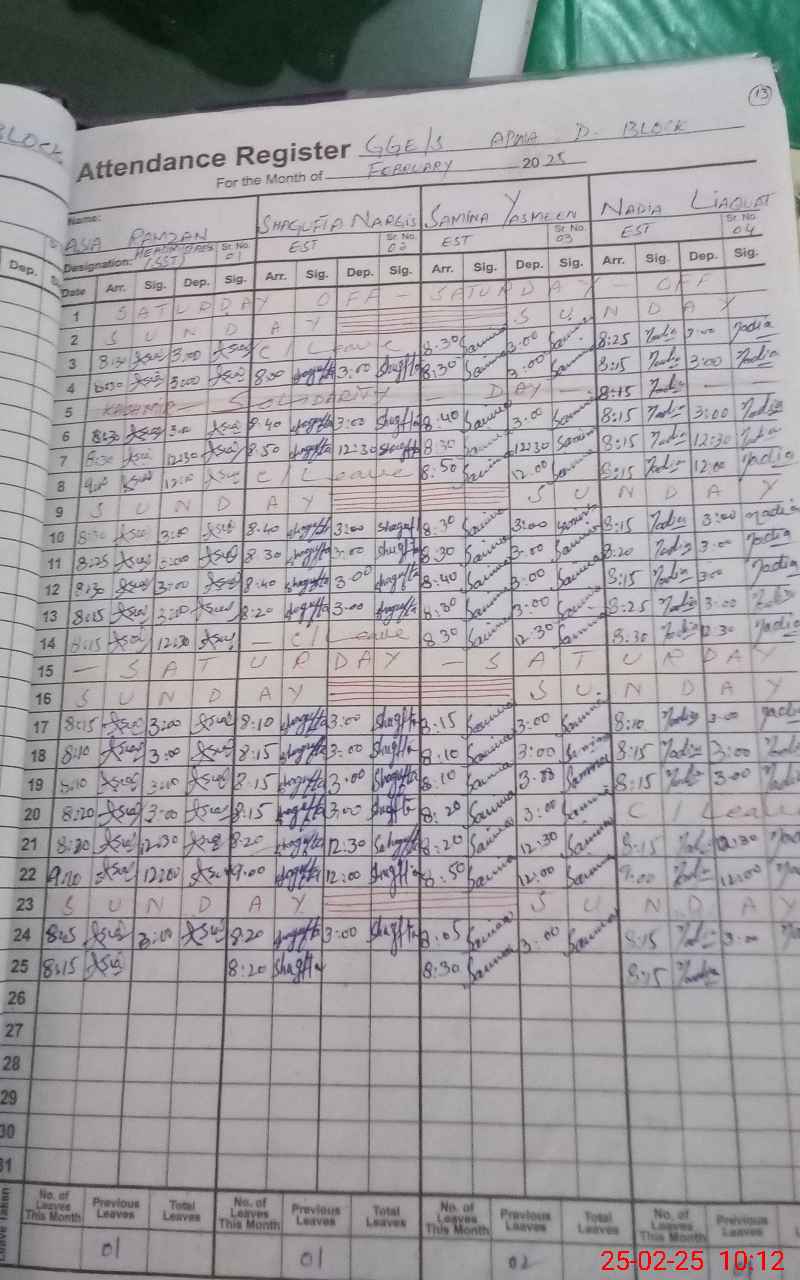 13
BLOCK
Attendance Register GGE/S APWA D. BLOCK
For the Month of FEBRUARY 2025
Name: ASIA RAMZAN SHAGUFTA NARGIS SAMINA YASMEEN NADIA LIAQUAT
Designation: HEADMISTRESS (SST) Sr. No. 01 EST Sr. No. 02 EST Sr. No. 03 EST Sr. No. 04
Dep. Date Arr. Sig. Dep. Sig. Arr. Sig. Dep. Sig. Arr. Sig. Dep. Sig. Arr. Sig. Dep. Sig.
1 SATURDAY OFF - SATURDAY - OFF
2 SUNDAY SUNDAY
3 8:30 3:00 C/Leave 8:30 Samina 3:00 8:25 Nadia 3:00 Nadia
4 8:30 3:00 8:00 Shagufta 3:00 Shagufta 8:30 Samina 3:00 Samina 8:15 Nadia 3:00 Nadia
5 KASHMIR - SOLIDARITY - DAY - 8:15 Nadia - -
6 8:30 3:00 8:40 Shagufta 3:00 Shagufta 8:40 Samina 3:00 Samina 8:15 Nadia 3:00 Nadia
7 8:30 12:30 8:50 Shagufta 12:30 Shagufta 8:30 Samina 12:30 Samina 8:15 Nadia 12:30 Nadia
8 9:00 12:00 C/Leave 8:50 Samina 12:00 Samina 8:15 Nadia 12:00 Nadia
9 SUNDAY SUNDAY
10 8:30 3:00 8:40 Shagufta 3:00 Shagufta 8:30 Samina 3:00 Samina 8:15 Nadia 3:00 Nadia
11 8:25 3:00 8:30 Shagufta 3:00 Shagufta 8:30 Samina 3:00 Samina 8:20 Nadia 3:00 Nadia
12 8:30 3:00 8:40 Shagufta 3:00 Shagufta 8:40 Samina 3:00 Samina 8:15 Nadia 3:00 Nadia
13 8:25 3:00 8:20 Shagufta 3:00 Shagufta 8:30 Samina 3:00 Samina 8:25 Nadia 3:00 Nadia
14 8:15 12:30 - C/Leave 8:30 Samina 12:30 Samina 8:30 Nadia 12:30 Nadia
15 - SATURDAY - SATURDAY
16 SUNDAY SUNDAY
17 8:15 3:00 8:10 Shagufta 3:00 Shagufta 8:15 Samina 3:00 Samina 8:10 Nadia 3:00 Nadia
18 8:10 3:00 8:15 Shagufta 3:00 Shagufta 8:10 Samina 3:00 Samina 8:15 Nadia 3:00 Nadia
19 8:10 3:00 8:15 Shagufta 3:00 Shagufta 8:10 Samina 3:00 Samina 8:15 Nadia 3:00 Nadia
20 8:20 3:00 8:15 Shagufta 3:00 Shagufta 8:20 Samina 3:00 Samina C/Leave
21 8:20 12:30 8:20 Shagufta 12:30 Shagufta 8:20 Samina 12:30 Samina 8:15 Nadia 12:30
22 9:10 12:00 9:00 Shagufta 12:00 Shagufta 8:50 Samina 12:00 Samina 9:00 Nadia 12:00
23 SUNDAY SUNDAY
24 3:00 8:20 Shagufta 3:00 Shagufta 8:05 Samina 3:00 Samina 8:15 Nadia 3:00
25 8:15 8:20 Shagufta 8:30 Samina 8:15 Nadia
26
27
28
29
30
31
Leave Taken No. of Leaves This Month Previous Leaves Total Leaves No. of Leaves This Month Previous Leaves Total Leaves No. of Leaves This Month Previous Leaves Total Leaves No. of Leaves This Month Previous Leaves
01 01 02
25-02-25 10:12